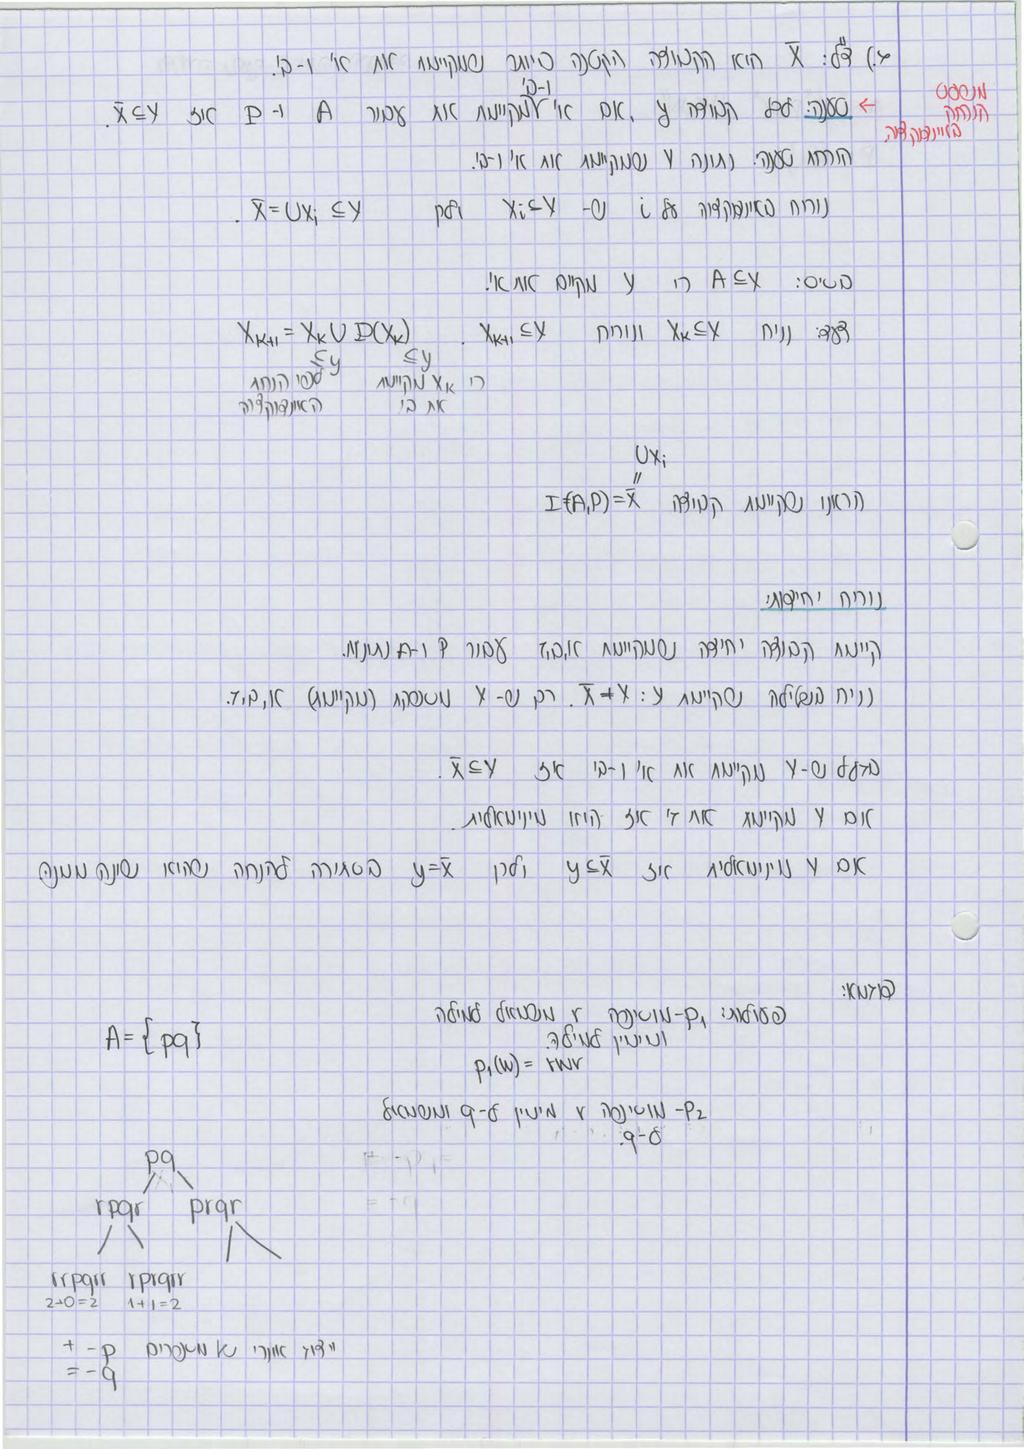 ד.) צ"ל: X̄ היא הקבוצה הקטנה ביותר שמקיימת את א' ו-ב'.
משפט הוכחה באינדוקציה.
← טענה: לכל קבוצה y, אם א' ו-ב' מקיימת את עבור A ו- P אז X̄ ⊆ Y.
הוכחת טענה: נתונה Y שמקיימת את א' ו-ב'.
נוכיח באינדוקציה על i ש- Xi ⊆ Y ולכן X̄ = ∪Xi ⊆ Y.
בסיס: A ⊆ Y כי Y מקיים את א'.
צעד: נניח XK ⊆ Y ונוכיח XK+1 ⊆ Y. XK+1 = XK ∪ P(XK)
⊆y ⊆y
לפי הנחת האינדוקציה
כי XK מקיימת את ב'
∪Xi
"
הראנו שקיימת קבוצה I(A,P) = X̄
נוכיח יחידות:
קיימת קבוצה יחידה שמקיימת א,ב,ד עבור P ו-A נתונות.
נניח בשלילה שקיימת y: X̄ ≠ Y. כך ש- Y מספקת (מקיימת) א,ב,ד.
בגלל ש-Y מקיימת את א' ו-ב' אז X̄ ⊆ Y.
אם Y מקיימת את ד' אז היא מינימאלית.
אם Y מינימאלית אז y ⊆ X̄ ולכן y = X̄ בסתירה להנחה שהיא שונה ממנה
דוגמא:
פעולות: p1-מוסיפה r משמאל למילה
ומימין למילה.
p1(w) = rwr
p2- מוסיפה r מימין ל-q ומשמאל
ל-q.
A = {pq}
pq
rpqr prqr
rrpqrr rprqrr
2+0=2 1+1=2
p - +
q - =